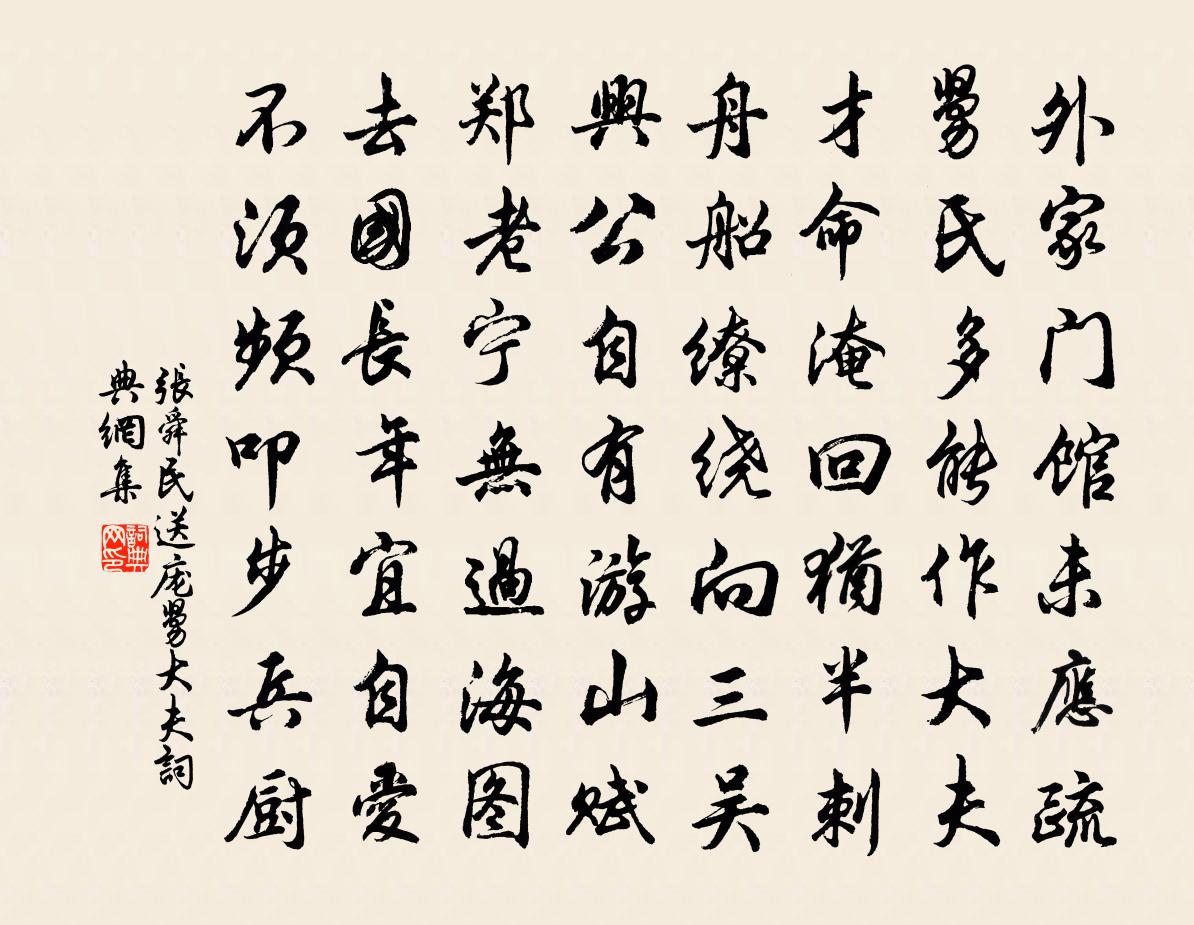 外家门馆未應疏
舅民多能作大夫
才命淹回猶半刺
舟船缭绕向三吴
興公自有游山赋
郑老宁無過海图
去國長年宜自愛
不须频叩步兵厨
張舜民送庞舅大夫詞
典網集
詞典
网印